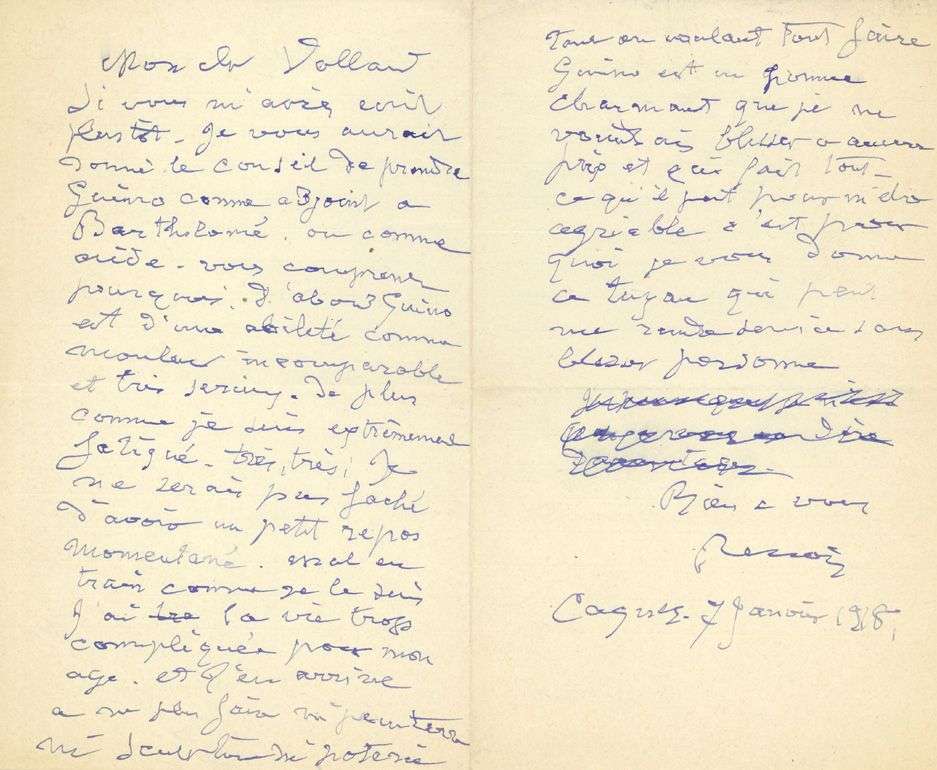 Mon cher Vollard
Si vous m'aviez ecrit
plustôt. Je vous aurait
donné le conseil de prendre
Guino comme adjoint a
Bartholomé. ou comme
aide. vous comprenez
pourquoi. D'abord Guino
est d'une abileté comme
mouleur incomparable
et tres serieux. De plus
comme je suis extrêmement
fatigué. très, très, Je
ne serais pas faché
d'avoir un petit repos
momentané. mal en
train comme je le suis
J'ai la vie trop
compliquée pour mon
age. et j'en arrive
a ne plus faire ni peinture
ni sculpture ni poterie
Tout en voulant tout faire
Guino est un homme
charmant que je ne
voudrais blesser a aucun
prix et qui fait tout
ce qu'il peut pour m'etre
agréable c'est pour
quoi je vous donne
ce tuyau qui peut
me rendre service sans
blesser personne
Bien a vous
Renoir
Cagnes. 7 Janvier 1918.